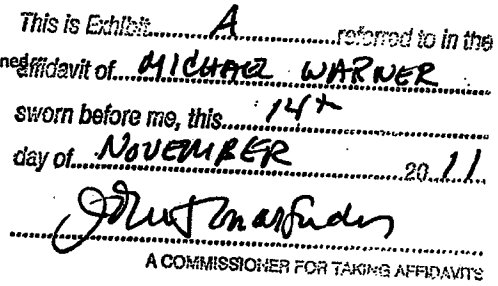 This is Exhibit......A......referred to in the
affidavit of......MICHAEL WARNER
sworn before me, this......14th
day of......NOVEMBER......2011
A COMMISSIONER FOR TAKING AFFIDAVITS